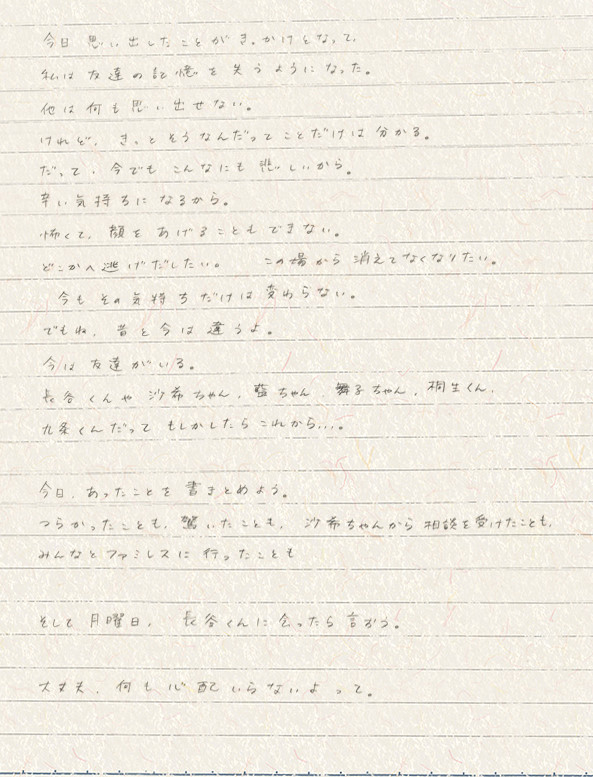 今日思い出したことがきっかけとなって、
私は友達の記憶を失うようになった。
他は何も思い出せない。
けれど、きっとそうなんだってことだけは分かる。
だって、今でもこんなにも悲しいから。
辛い気持ちになるから。
怖くて、顔をあげることもできない。
どこかへ逃げだしたい。 この場から消えてなくなりたい。
今もその気持ちだけは変わらない。
でもね、昔と今は違うよ。
今は友達がいる。
長谷くんや沙希ちゃん、藍ちゃん、舞子ちゃん、桐生くん、
九条くんだってもしかしたらこれから…。
今日、あったことを書きとめよう。
つらかったことも、驚いたことも、沙希ちゃんから相談を受けたことも、
みんなとファミレスに行ったことも
そして月曜日、長谷くんに会ったら言おう。
大丈夫、何も心配いらないよって。